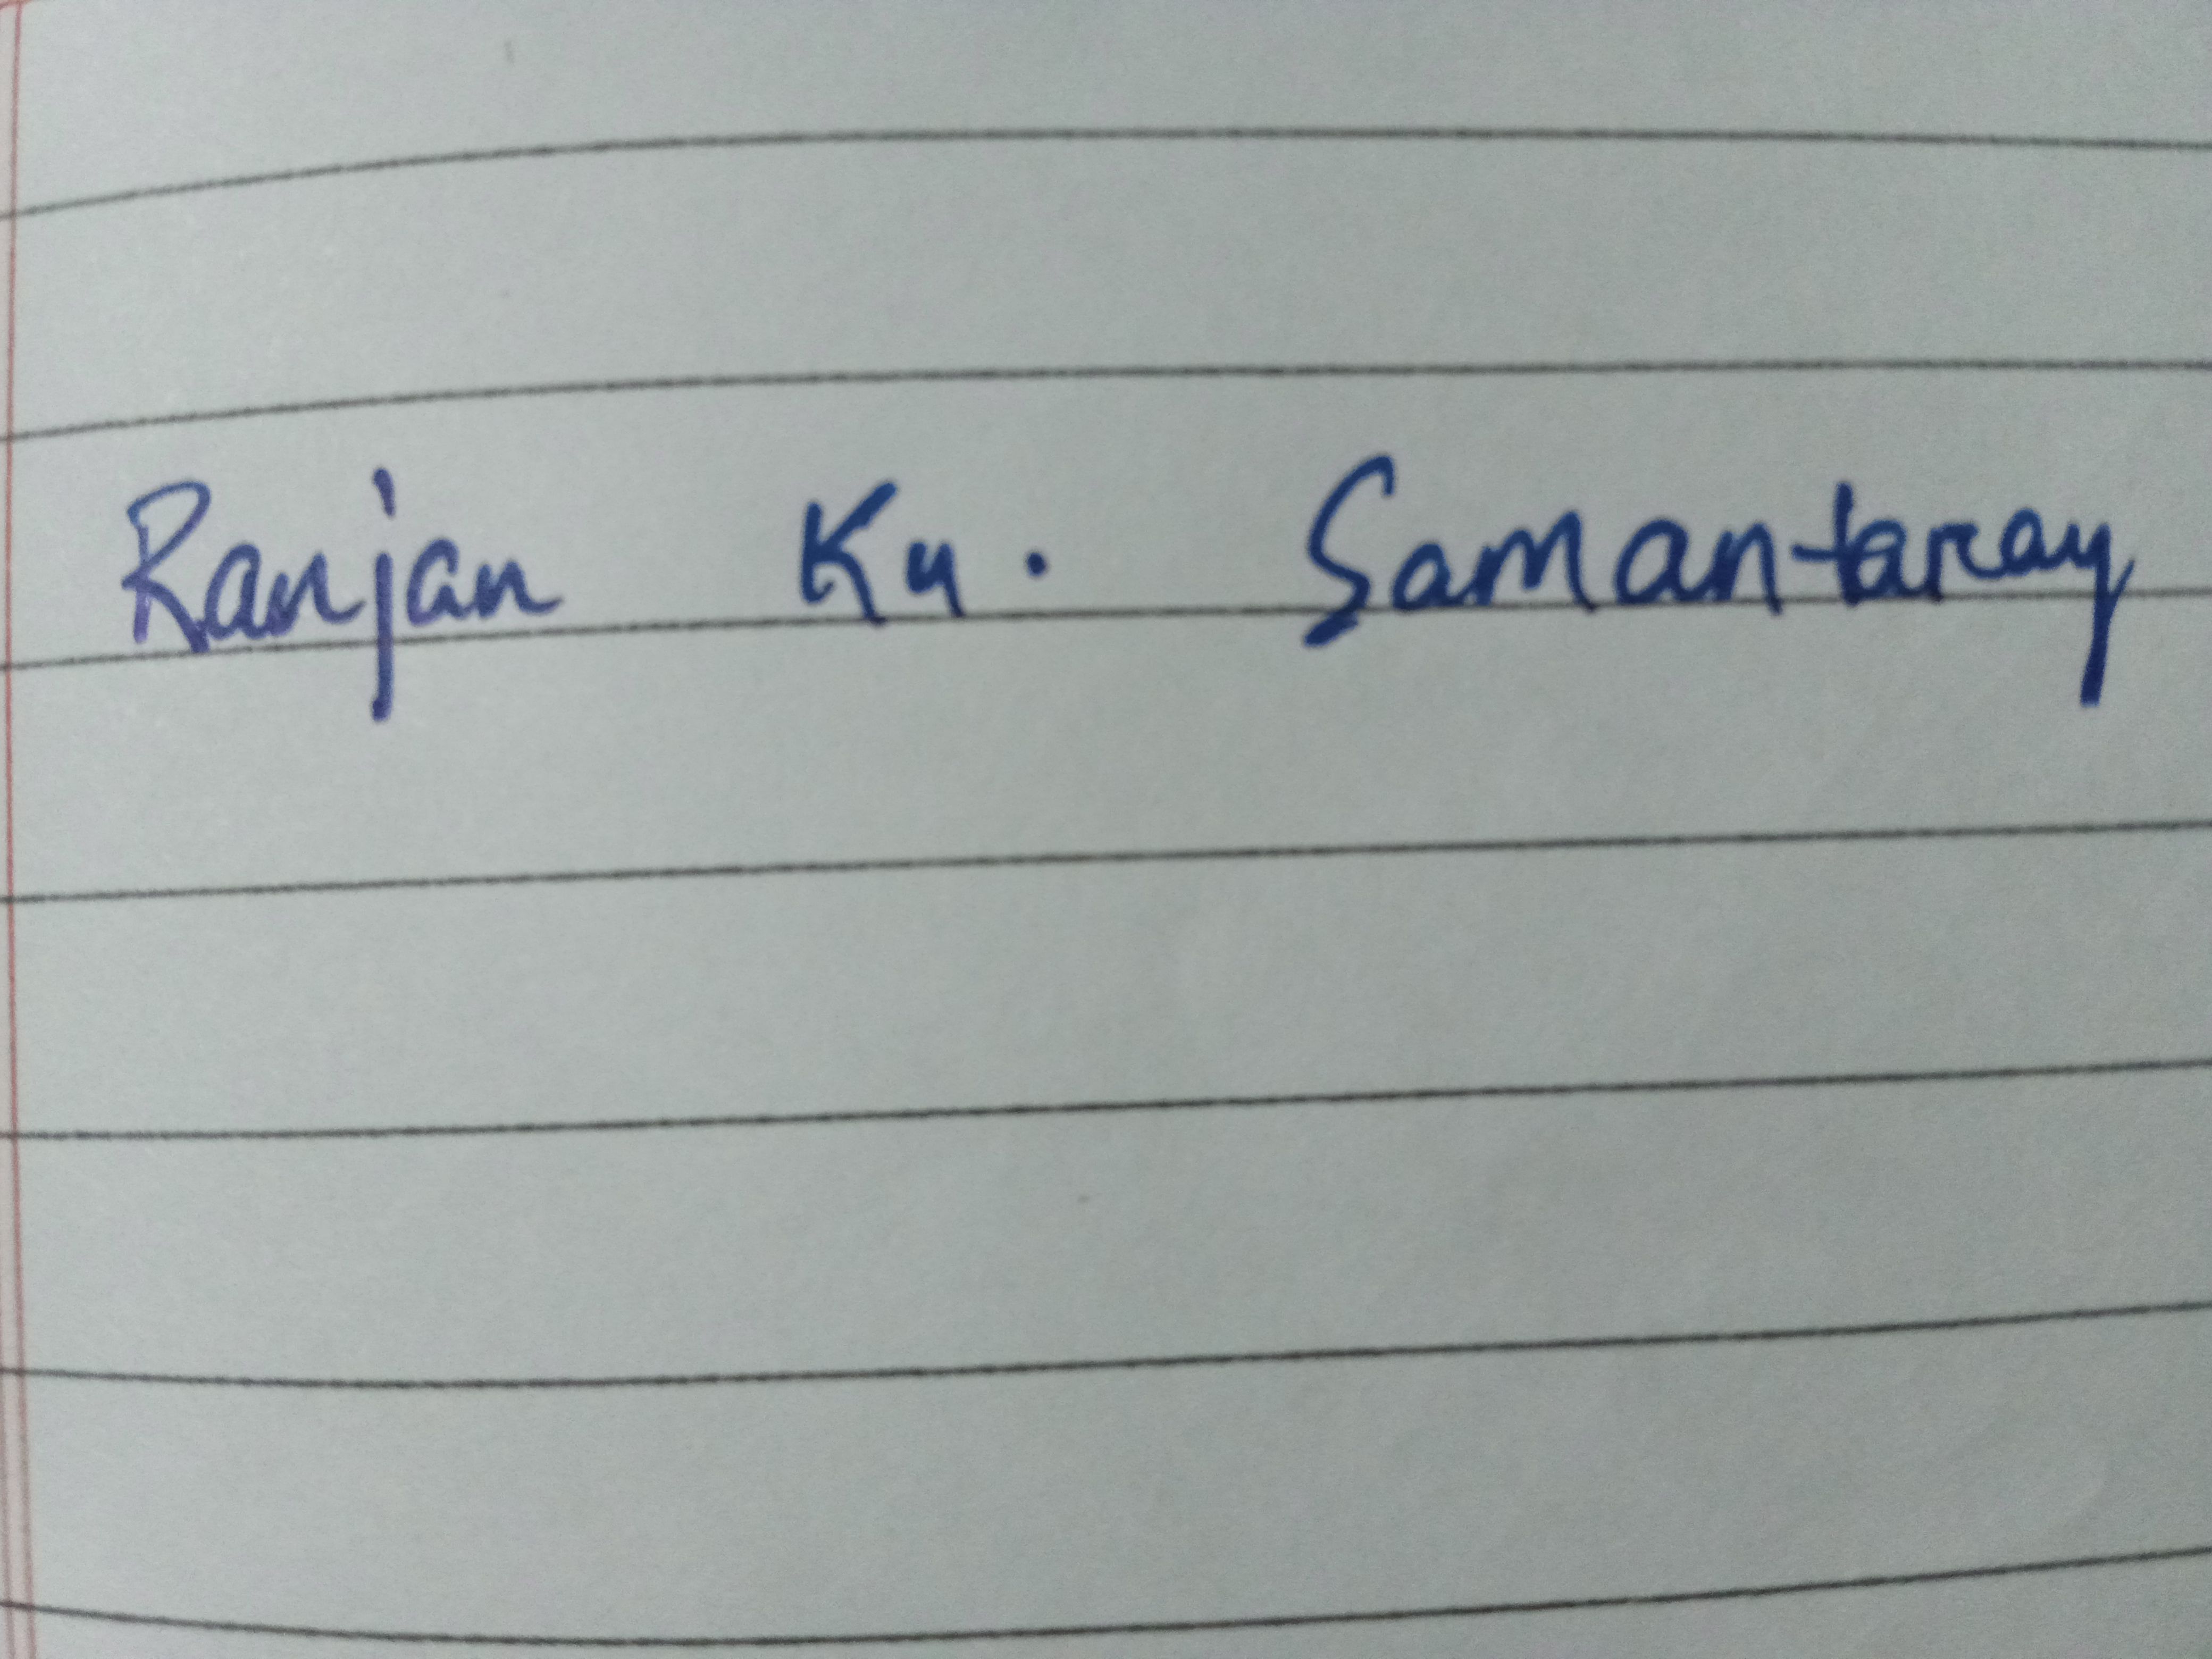 Ranjan Ku. Samantaray